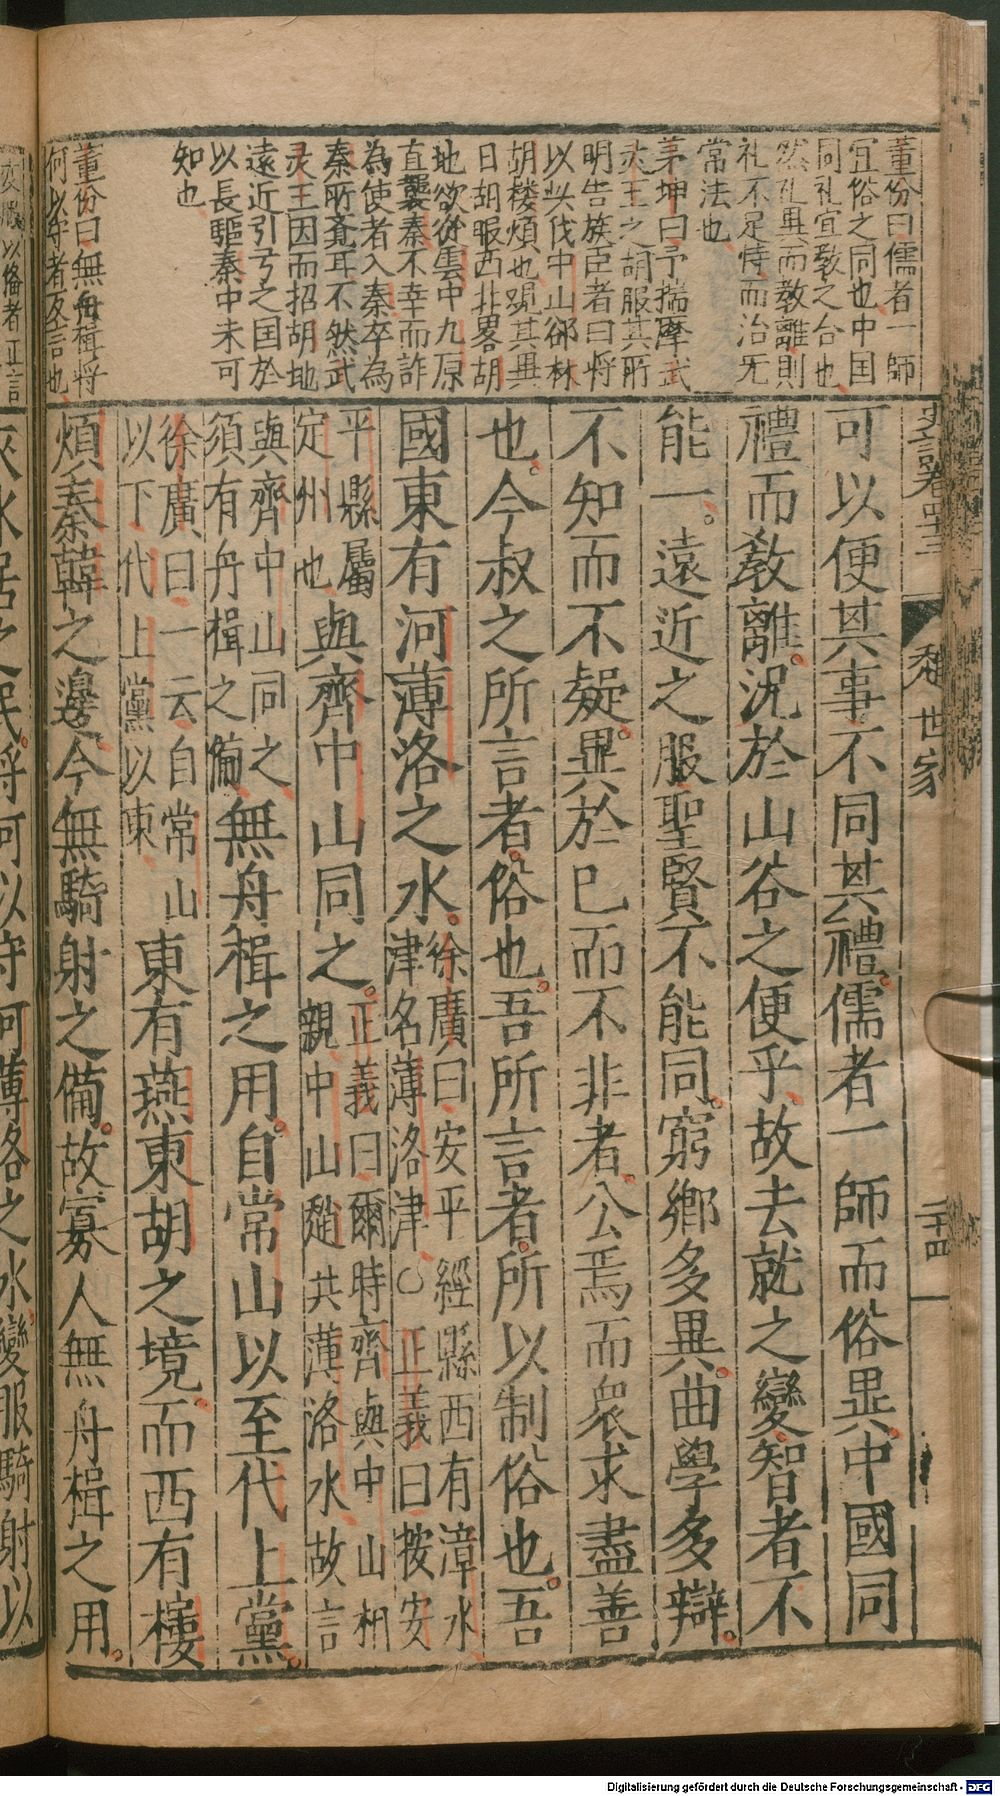 史記卷四十三
趙世家
二十四
董份曰儒者一師
宜俗之同也中国
同礼宜敎之合也
然礼異而敎離則
礼不足恃而治无
常法也
茅坤曰予揣摩武
灵王之胡服其所
明告族臣者曰將
以北伐中山郤林
胡楼煩也覬其畢
日胡服西北畧胡
地欲從雲中九原
直襲秦不幸而詐
為使者入秦卒為
秦所覺耳不然武
灵王因而招胡地
遠近引弓之国於
以長驅秦中未可
知也
董份曰無舟楫將
何以守者反言也
可以便其事不同其禮儒者一師而俗異中國同
禮而敎離況於山谷之便乎故去就之變智者不
能一遠近之服聖賢不能同窮鄉多異曲學多辯
不知而不疑異於已而不非者公焉而衆求盡善
也今叔之所言者俗也吾所言者所以制俗也吾
國東有河薄洛之水徐廣曰安平經縣西有漳水
津名薄洛津〇正義曰按安
平縣屬
定州也與齊中山同之正義曰爾時齊與中山相
親中山趙共薄洛水故言
與齊中山同之
須有舟楫之備無舟楫之用自常山以至代上黨
徐廣曰一云自常山
以下代上黨以東東有燕東胡之境而西有樓
煩秦韓之邊今無騎射之備故寡人無舟楫之用
變服以備者正言
夾水居之民將何以守河薄洛之水變服騎射以
Digitalisierung gefördert durch die Deutsche Forschungsgemeinschaft - DFG